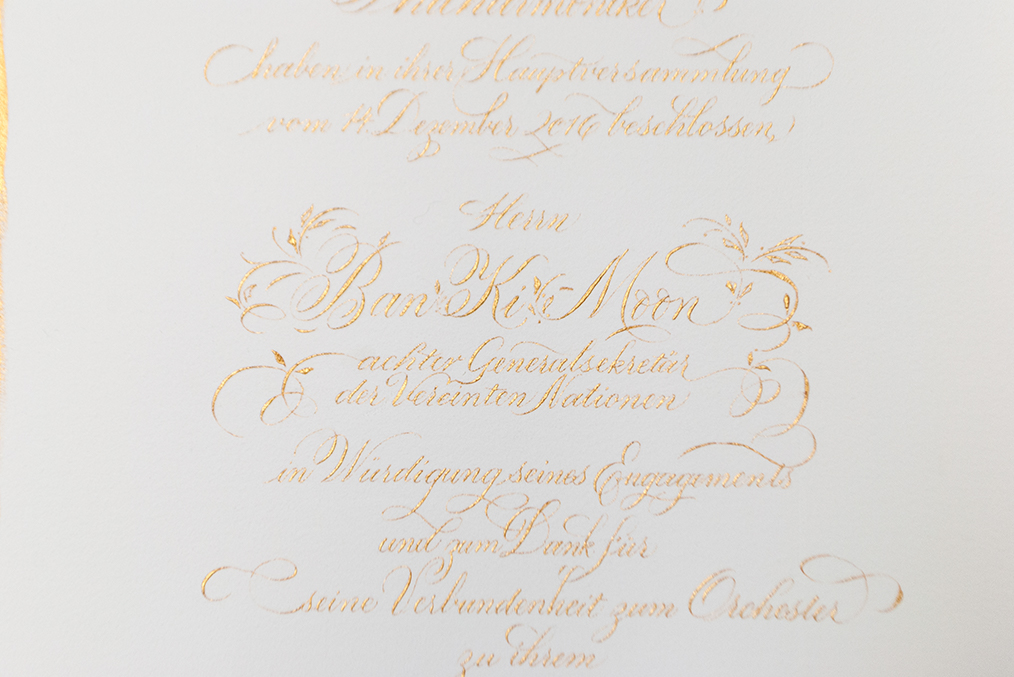 Philharmoniker
haben in ihrer Hauptversammlung
vom 14. Dezember 2016 beschlossen,
Herrn
Ban Ki-Moon
achter Generalsekretär
der Vereinten Nationen
in Würdigung seines Engagements
und zum Dank für
seine Verbundenheit zum Orchester
zu ihrem